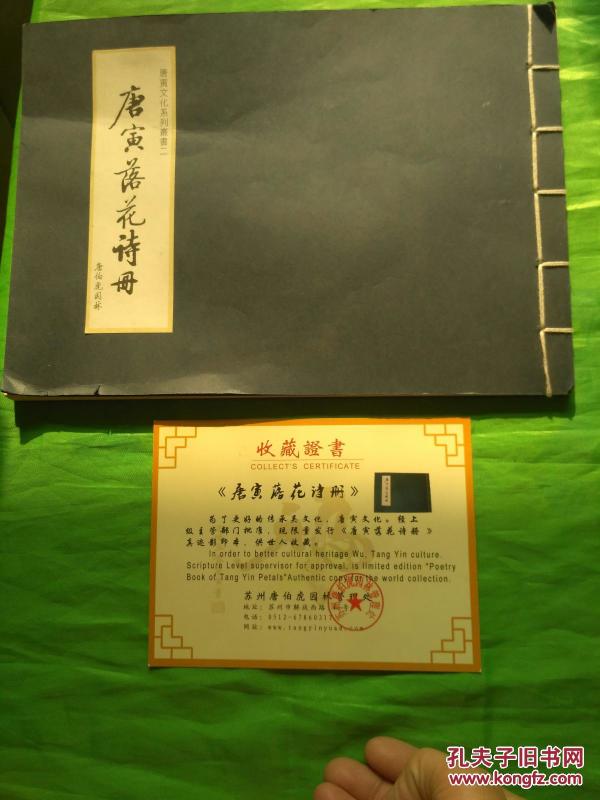 唐寅文化系列叢書二
唐寅落花诗册
唐伯虎园林
收藏證書
COLLECT'S CERTIFICATE
《唐寅落花诗册》
为了更好的传承吴文化,唐寅文化。经上
级主管部门批准,现限量发行《唐寅落花诗册》
真迹影印本,供世人收藏。
In order to better cultural heritage Wu, Tang Yin culture.
Scripture Level supervisor for approval, is limited edition "Poetry
Book of Tang Yin Petals"Authentic copy for the world collection.
苏州唐伯虎园林管理处
地址:苏州市解放西路
电话:0512-67860317
网址:www.tangyinyuan.com
孔夫子旧书网
www.kongfz.com